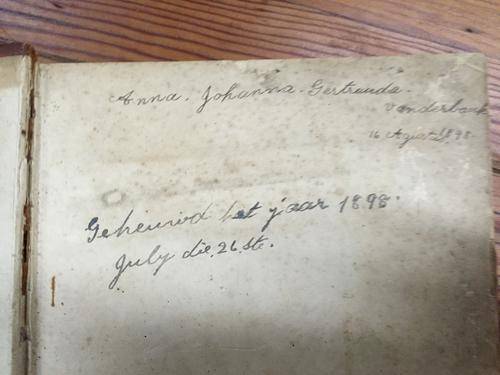 Anna. Johanna. Gertruuda.
vanderbank
16 Agust 1898.
Geheuwd het jaar 1898.
July die 26 ste.